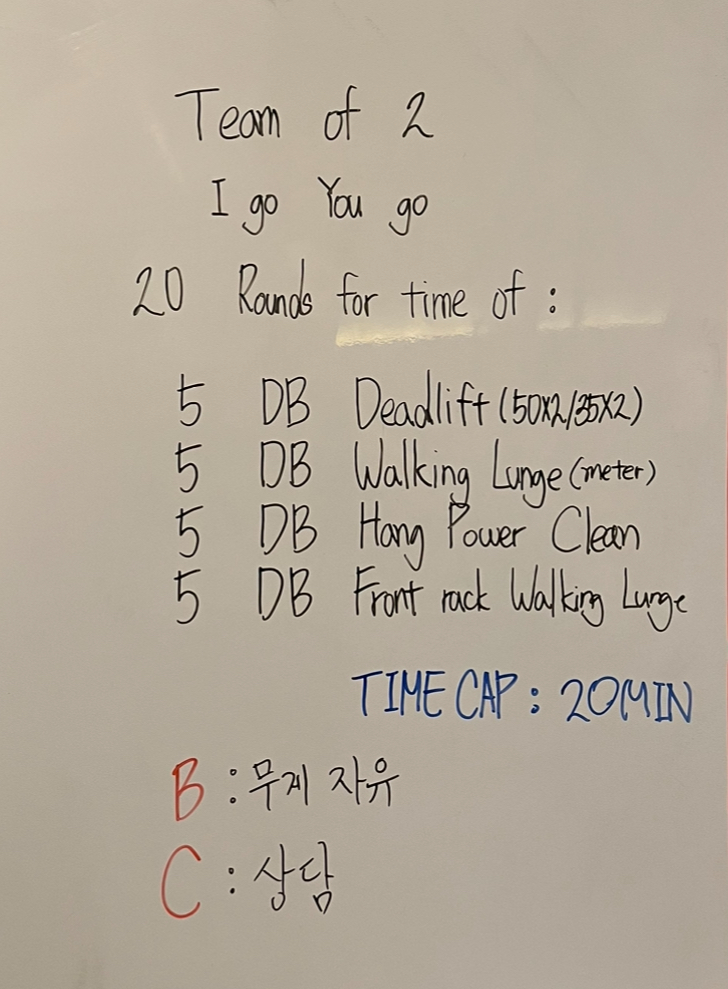 Team of 2
I go You go
20 Rounds for time of :
5 DB Deadlift (50X2/35X2)
5 DB Walking Lunge (meter)
5 DB Hang Power Clean
5 DB Front rack Walking Lunge
TIME CAP : 20MIN
B : 무게 자유
C : 상담